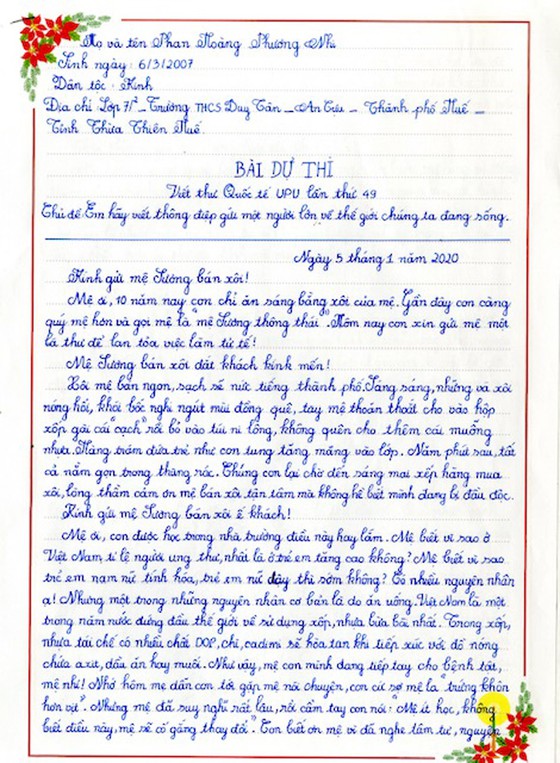 Họ và tên Phan Hoàng Phương Nhi
Sinh ngày: 6/3/2007
Dân tộc: Kinh
Địa chỉ: Lớp 7/2 – Trường THCS Duy Tân – An Cựu – Thành phố Huế –
Tỉnh Thừa Thiên Huế.
BÀI DỰ THI
Viết thư Quốc tế UPU lần thứ 49
Chủ đề: Em hãy viết thông điệp gửi một người lớn về thế giới chúng ta đang sống.
Ngày 5 tháng 1 năm 2020
Kính gửi mệ Sương bán xôi!
Mệ ơi, 10 năm nay con chỉ ăn sáng bằng xôi của mệ. Gần đây con càng
quý mệ hơn và gọi mệ là "mệ Sương thông thái". Hôm nay con xin gửi mệ một
lá thư để lan tỏa việc làm tử tế!
Mệ Sương bán xôi đắt khách kính mến!
Xôi mệ bán ngon, sạch sẽ nức tiếng thành phố. Sáng sáng, những vá xôi
nóng hổi, khói bốc nghi ngút mùi đồng quê, tay mệ thoăn thoắt cho vào hộp
xốp gài cái "cạch" rồi bỏ vào túi ni lông, không quên cho thêm cái muỗng
nhựa. Hàng trăm đứa trẻ như con tung tăng mang vào lớp. Năm phút sau, tất
cả nằm gọn trong thùng rác. Chúng con lại chờ đến sáng mai xếp hàng mua
xôi, lòng thầm cảm ơn mệ bán xôi tận tâm mà không hề biết mình đang bị đầu độc.
Kính gửi mệ Sương bán xôi ế khách!
Mệ ơi, con được học trong nhà trường điều này hay lắm. Mệ biết vì sao ở
Việt Nam tỉ lệ người ung thư, nhất là ở trẻ em tăng cao không? Mệ biết vì sao
trẻ em nam nữ tính hóa, trẻ em nữ dậy thì sớm không? Có nhiều nguyên nhân
ạ! Nhưng một trong những nguyên nhân cơ bản là do ăn uống. Việt Nam là một
trong năm nước đứng đầu thế giới về sử dụng xốp, nhựa bừa bãi nhất. Trong xốp,
nhựa tái chế có nhiều chất DOP, chì, cadimi sẽ hòa tan khi tiếp xúc với đồ nóng
chứa axit, dầu ăn hay muối. Như vậy, mệ con mình đang tiếp tay cho bệnh tật,
mệ nhỉ! Nhớ hôm mẹ dẫn con tới gặp mệ nói chuyện, con cứ sợ mệ la "trứng khôn
hơn vịt". Nhưng mệ đã suy nghĩ rất lâu, rồi cầm tay con nói: "Mệ ít học, không
biết điều này, mệ sẽ cố gắng thay đổi". Con biết ơn mệ vì đã nghe tâm tư, nguyện